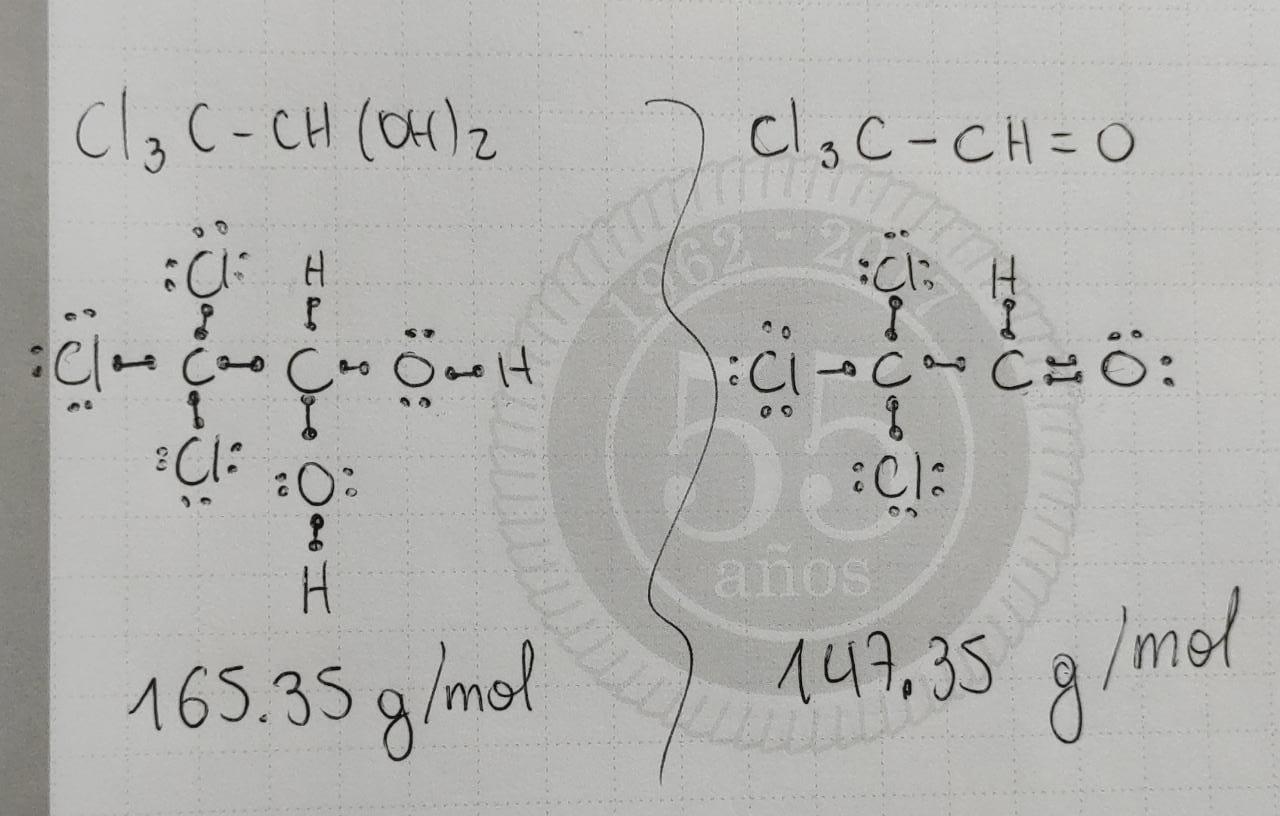 Cl₃C-CH(OH)₂
Cl H
Cl C C O H
Cl O
H
165.35 g/mol
Cl₃C-CH=O
Cl H
Cl C C O
Cl
147.35 g/mol
1962 - 2017
55
años